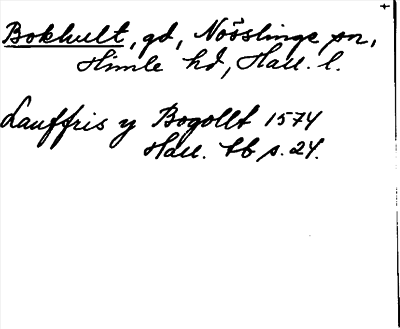 Bokhult, gd, Nösslinge sn,
Himle hd, Hall. l.
Lauffris y Bogollt 1574
Hall. tb s. 24.